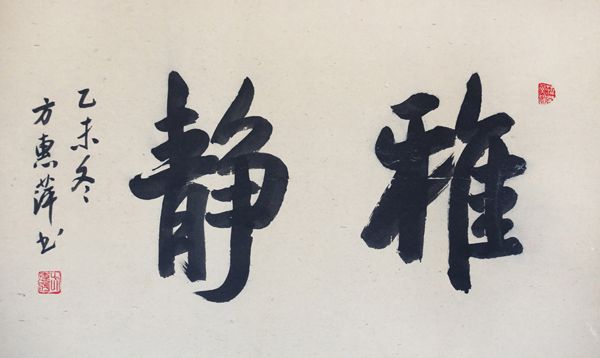 雅静
乙未冬
方惠萍书